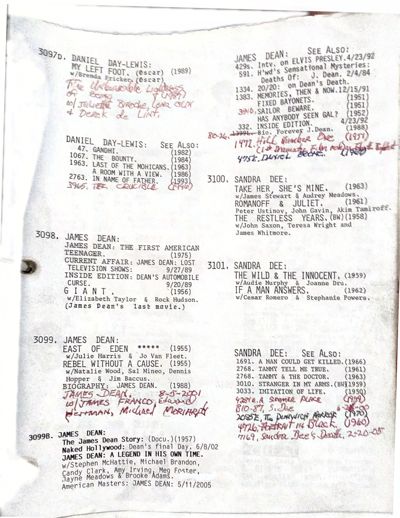 3097D. DANIEL DAY-LEWIS:
MY LEFT FOOT. (Oscar) (1989)
w/Brenda Fricker. (Oscar)
The Unbearable Lightness
of Being
w/ Juliette Binoche, Lena Olin
& Derek de Lint.
DANIEL DAY-LEWIS: See Also:
47. GANDHI. (1982)
1067. THE BOUNTY. (1984)
1963. LAST OF THE MOHICANS. (1992)
A ROOM WITH A VIEW. (1986)
2763. IN NAME OF FATHER. (1993)
3965. THE CRUCIBLE (1996)
3098. JAMES DEAN:
JAMES DEAN: THE FIRST AMERICAN
TEENAGER. (1975)
CURRENT AFFAIR: JAMES DEAN: LOST
TELEVISION SHOWS: 9/27/89
INSIDE EDITION: DEAN'S AUTOMOBILE
CURSE. 9/20/89
G I A N T. (1956)
w/Elizabeth Taylor & Rock Hudson.
(James Dean's last movie.)
3099. JAMES DEAN:
EAST OF EDEN ***** (1955)
w/Julie Harris & Jo Van Fleet.
REBEL WITHOUT A CAUSE. (1955)
w/Natalie Wood, Sal Mineo, Dennis
Hopper & Jim Baccus.
BIOGRAPHY: JAMES DEAN. (1988)
JAMES DEAN 8-25-2001
w/ JAMES FRANCO, Edward
Herrmann, Michael MORIARTY
3099B. JAMES DEAN:
The James Dean Story: (Docu.)(1957)
Naked Hollywood: Dean's final Day. 6/8/02
JAMES DEAN: A LEGEND IN HIS OWN TIME.
w/Stephen McHattie, Michael Brandon,
Candy Clark, Amy Irving, Meg Foster,
Jayne Meadows & Brooke Adams.
American Masters: JAMES DEAN: 5/11/2005
JAMES DEAN: SEE Also:
429s. Intv. on ELVIS PRESLEY.4/23/92
591. H'wd's Sensational Mysteries:
Deaths Of: J. Dean. 2/4/84
1334. 20/20: on Dean's Death.
1383. MEMORIES, THEN & NOW.12/15/91
FIXED BAYONETS. (1951)
3040. SAILOR BEWARE. (1951)
HAS ANYBODY SEEN GAL? (1952)
332. INSIDE EDITION. 4/23/92
Bio. Forever J.Dean. (1988)
3100. SANDRA DEE:
TAKE HER, SHE'S MINE. (1963)
w/James Stewart & Audrey Meadows.
ROMANOFF & JULIET. (1961)
Peter Ustinov, John Gavin, Akim Tamiroff.
THE RESTLESS YEARS.(BW)(1958)
w/John Saxon, Teresa Wright and
James Whitmore.
3101. SANDRA DEE:
THE WILD & THE INNOCENT. (1959)
w/Audie Murphy & Joanne Dru.
IF A MAN ANSWERS. (1962)
w/Cesar Romero & Stephanie Powers.
SANDRA DEE: See Also:
1691. A MAN COULD GET KILLED.(1966)
2768. TAMMY TELL ME TRUE. (1961)
2768. TAMMY & THE DOCTOR. (1963)
3010. STRANGER IN MY ARMS.(BW)1959)
3033. IMITATION OF LIFE. (1959)
A SUMMER PLACE (1959)
THE DUNWICH HORROR (1970)
4726. Portrait in Black (1960)
7169. Sandra Dee's Death, 2-20-05